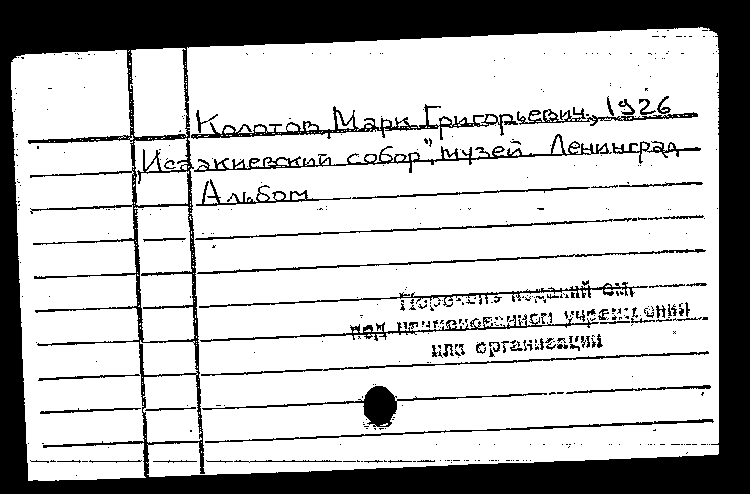 Колотов, Марк Григорьевич, 1926
„Исаакиевский собор", музей. Ленинград
Альбом
Перечень изданий см.
под наименованием учреждения
или организации